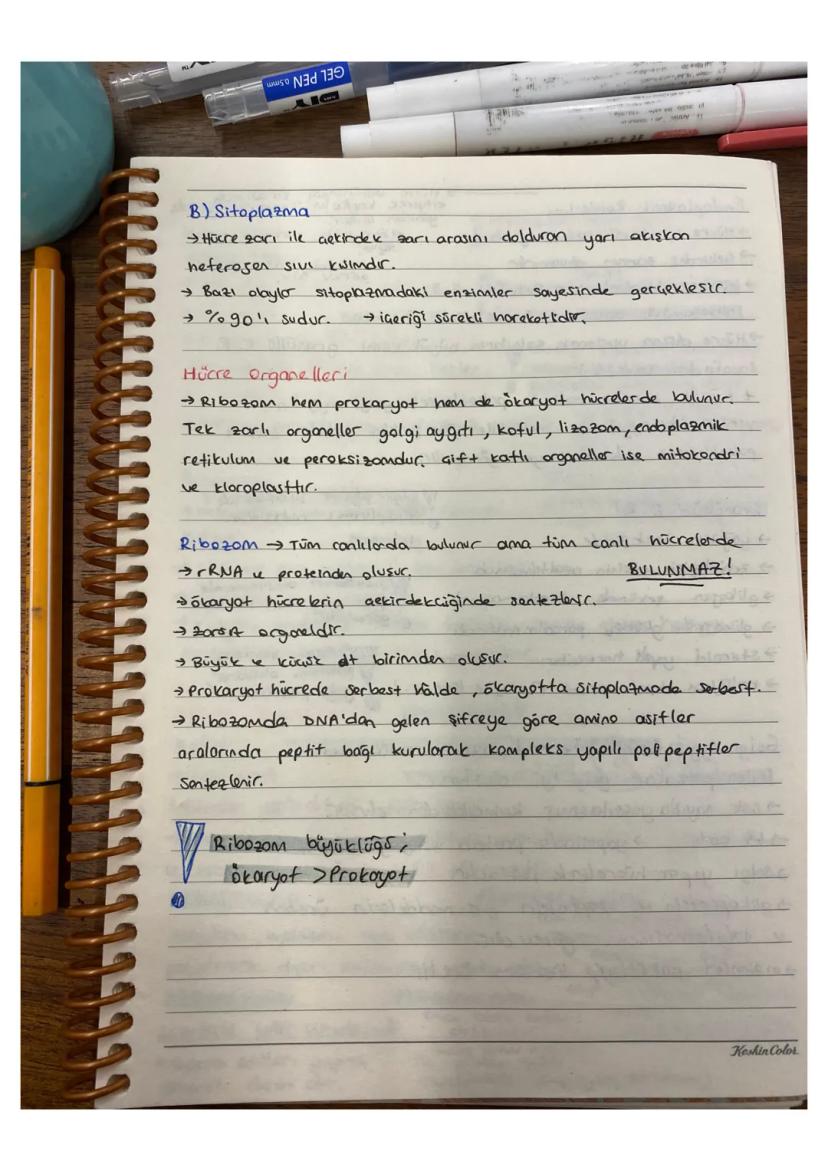 GEL PEN 0.5mm
B) Sitoplazma
→ Hücre zarı ile çekirdek zarı arasını dolduran yarı akışkan
heterojen sıvı kısımdır.
→ Bazı olaylar sitoplazmadaki enzimler sayesinde gerçekleşir.
→ %90'ı sudur. → içeriği sürekli harekettdir.
Hücre Organelleri
→ Ribozom hem prokaryot hem de ökaryot hücrelerde bulunur.
Tek zarlı organeller golgi aygıtı, koful, lizozom, endoplazmik
retikulum ve peroksizomdur. Çift katlı organeller ise mitokondri
ve kloroplasttır.
Ribozom → Tüm canlılarda bulunur ama tüm canlı hücrelerde
→ rRNA ve proteinden oluşur. BULUNMAZ!
→ ökaryot hücrelerin çekirdekçiğinde sentezlenir.
→ zarsız organeldir.
→ Büyük ve küçük alt birimden oluşur.
→ Prokaryot hücrede serbest halde, ökaryotta sitoplazmada serbest.
→ Ribozomda DNA'dan gelen şifreye göre amino asitler
aralarında peptit bağı kurularak kompleks yapılı polipeptitler
sentezlenir.
Ribozom büyüklüğü;
ökaryot > Prokayot
KeskinColor